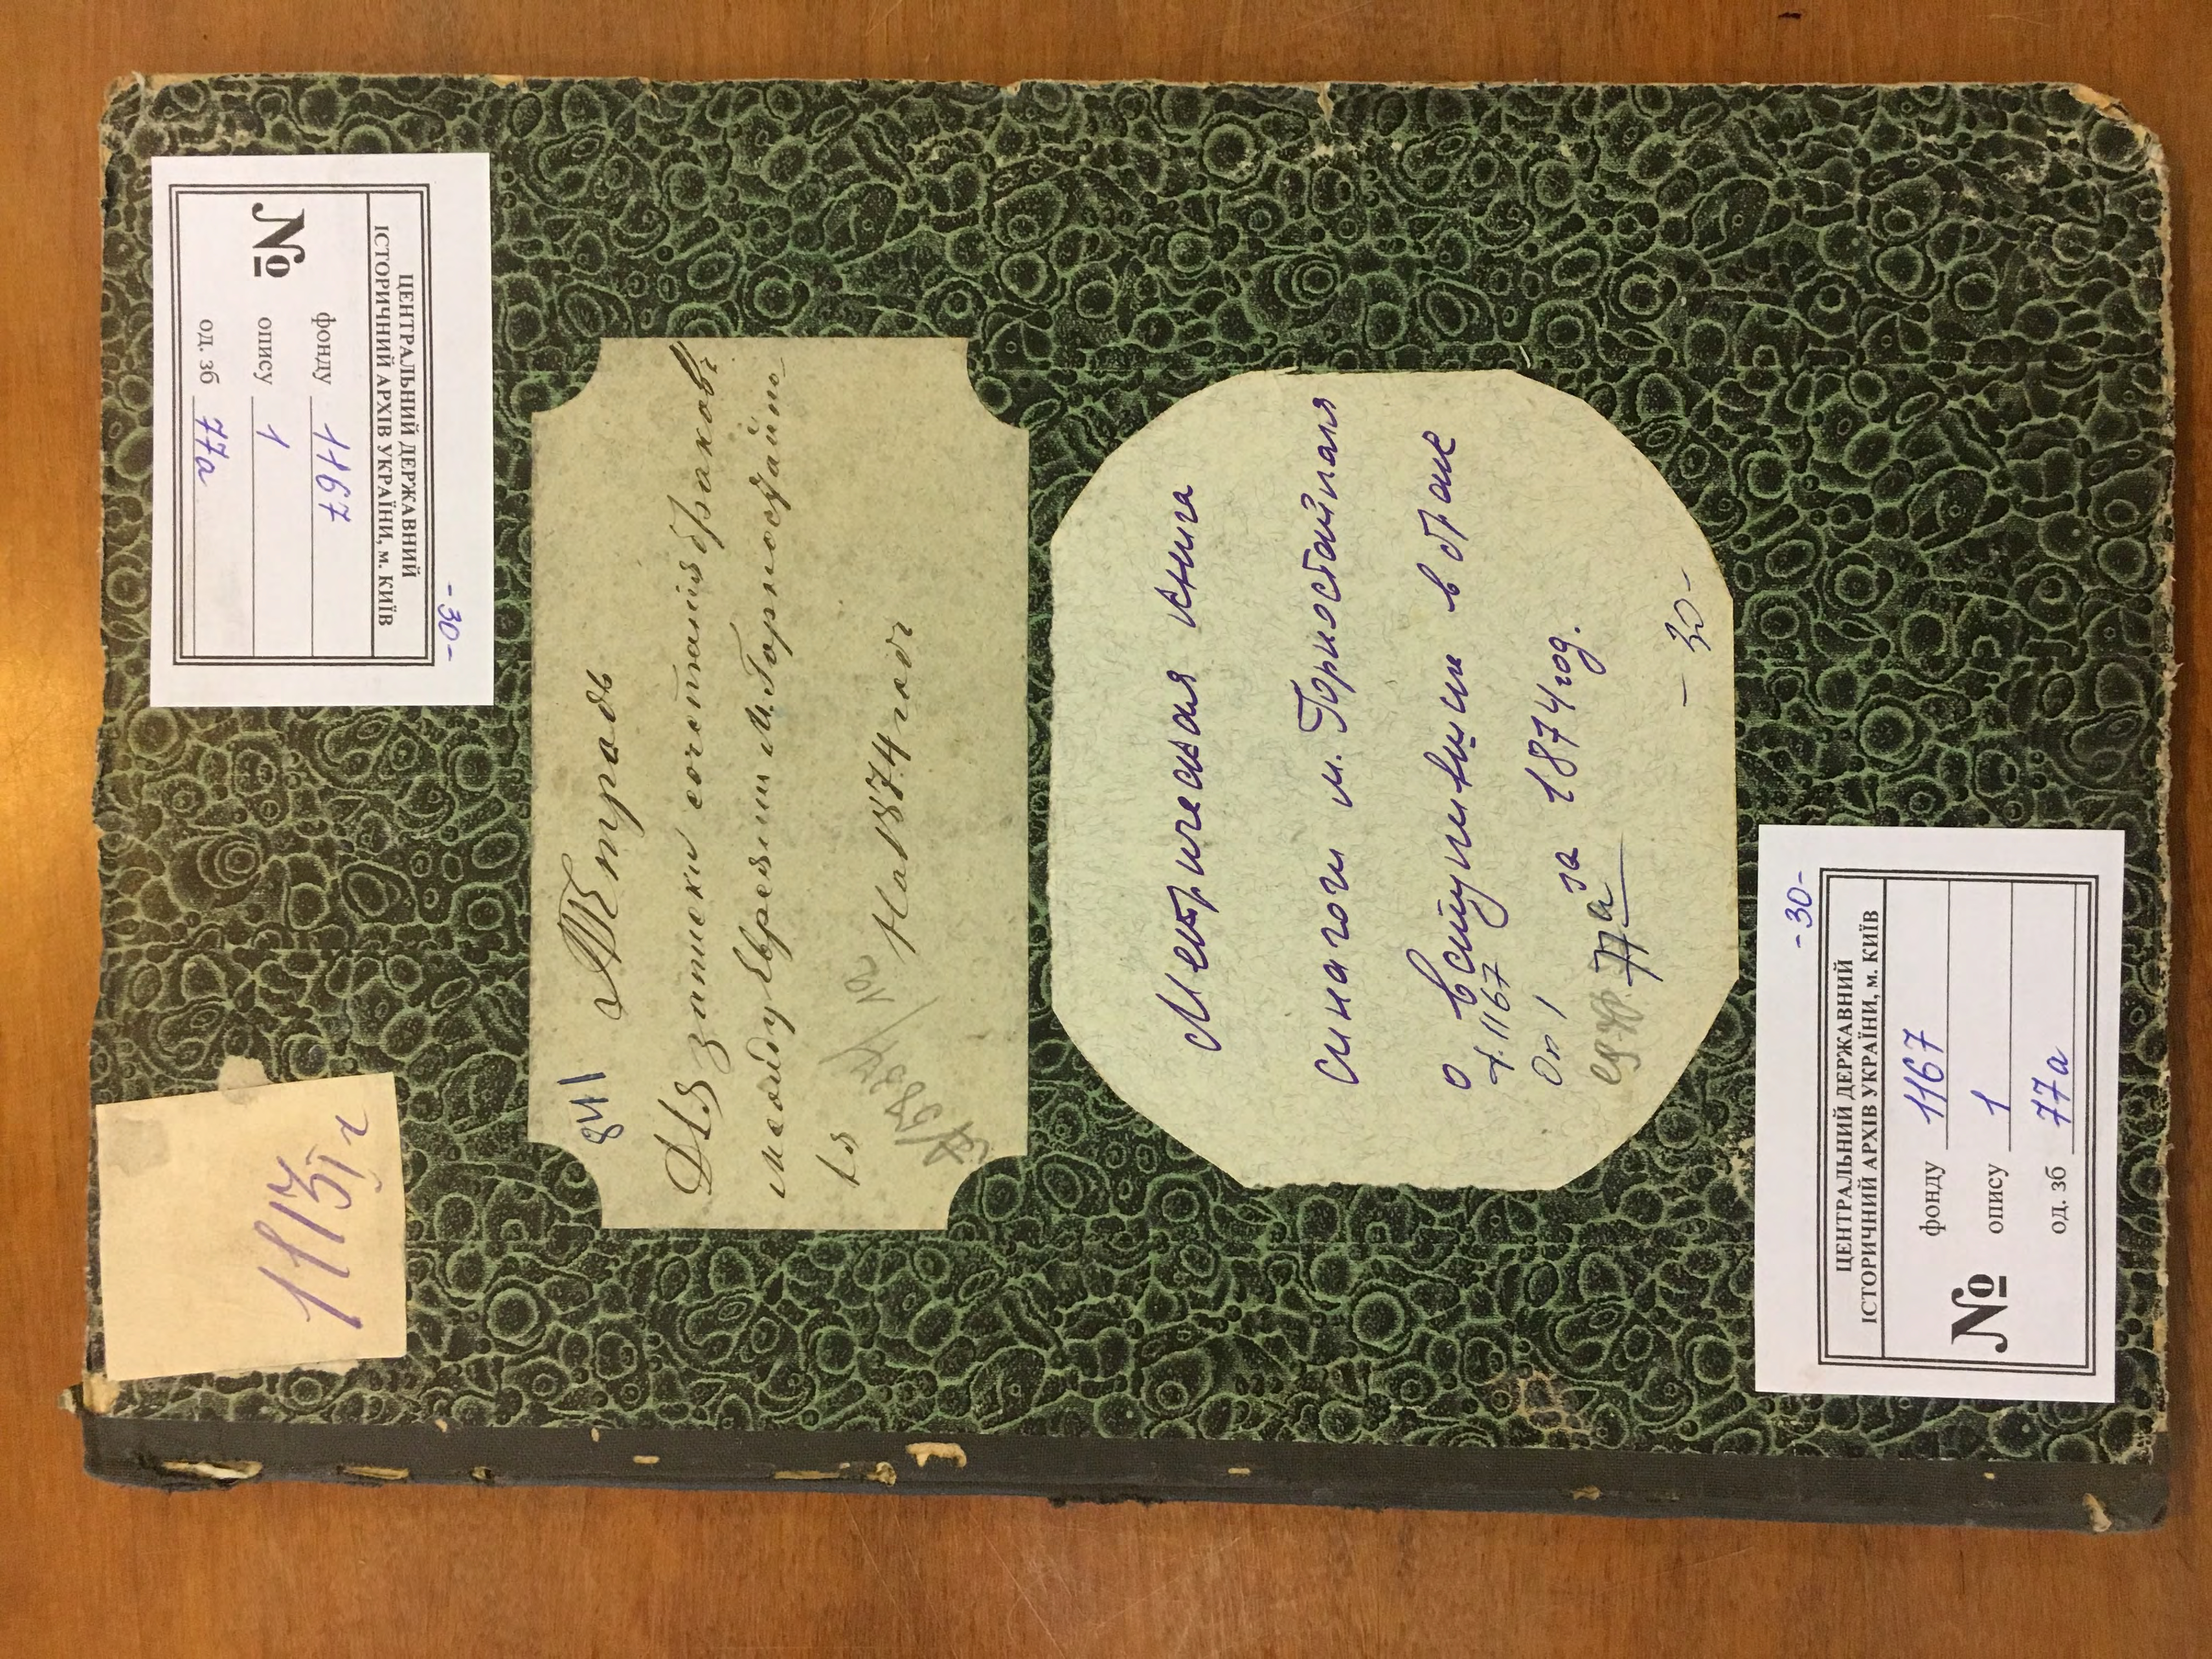 ЦЕНТРАЛЬНИЙ ДЕРЖАВНИЙ
ІСТОРИЧНИЙ АРХІВ УКРАЇНИ, м. КИЇВ
№
фонду 1167
опису 1
од. зб 77а
-30-
841
Тетрадь
Для записки сочетанія браковъ
между Евреями М. Горностайпо-
ля
На 1874 годъ
Метрическая книга
синагоги м. Горностайполя
о вступивши в брак
за 1874 год.
ф. 1167
Оп 1
77а
- 30 -
-30-
ЦЕНТРАЛЬНИЙ ДЕРЖАВНИЙ
ІСТОРИЧНИЙ АРХІВ УКРАЇНИ, м. КИЇВ
№
фонду 1167
опису 1
од. зб 77а